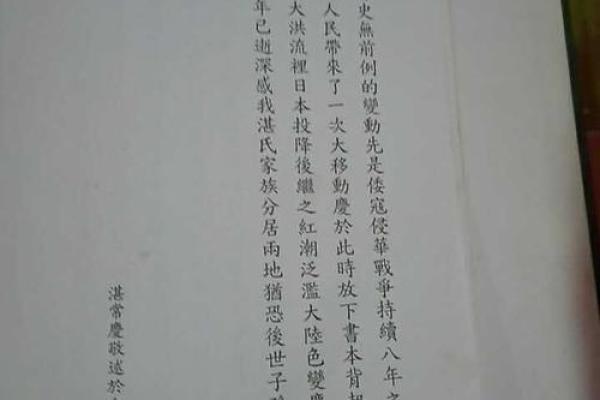 史無前例的變動先是倭寇侵華戰爭持續八年之
人民帶來了一次大移動慶於此時放下書本背
大洪流裡日本投降後繼之紅潮泛濫大陸色變
年已逝深感我湛氏家族分居兩地猶恐後世子
湛常慶敬述於